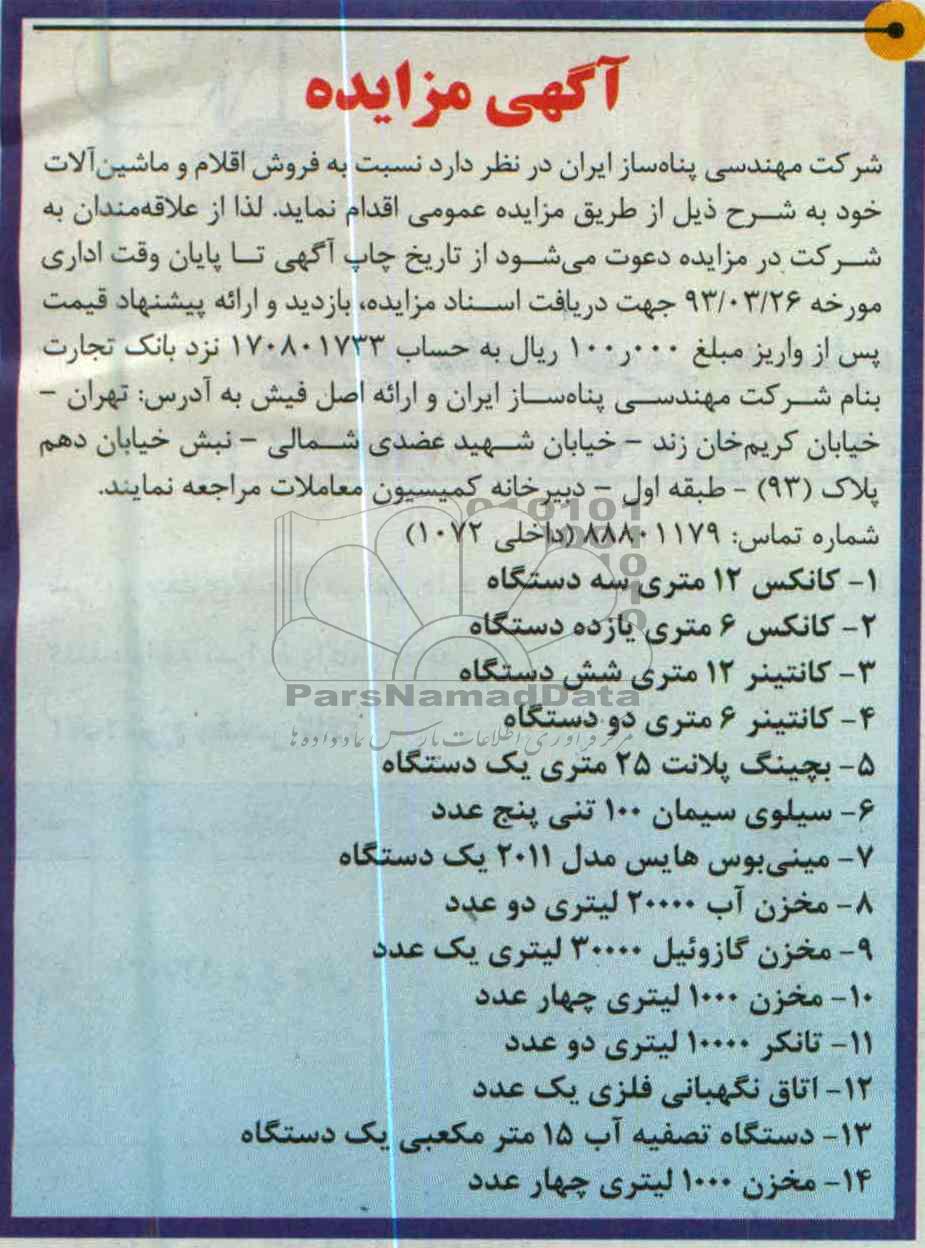 آگهی مزایده
شرکت مهندسی پناه‌ساز ایران در نظر دارد نسبت به فروش اقلام و ماشین‌آلات
خود به شرح ذیل از طریق مزایده عمومی اقدام نماید. لذا از علاقه‌مندان به
شرکت در مزایده دعوت می‌شود از تاریخ چاپ آگهی تا پایان وقت اداری
مورخه ۹۳/۰۳/۲۶ جهت دریافت اسناد مزایده، بازدید و ارائه پیشنهاد قیمت
پس از واریز مبلغ ۱۰۰ر۰۰۰ ریال به حساب ۱۷۰۸۰۱۷۳۳ نزد بانک تجارت
بنام شرکت مهندسی پناه‌ساز ایران و ارائه اصل فیش به آدرس: تهران –
خیابان کریم‌خان زند – خیابان شهید عضدی شمالی – نبش خیابان دهم
پلاک (۹۳) - طبقه اول – دبیرخانه کمیسیون معاملات مراجعه نمایند.
شماره تماس: ۸۸۸۰۱۱۷۹ (داخلی ۱۰۷۲)
۱- کانکس ۱۲ متری سه دستگاه
۲- کانکس ۶ متری یازده دستگاه
۳- کانتینر ۱۲ متری شش دستگاه
ParsNamadData
۴- کانتینر ۶ متری دو دستگاه
مرکز فرآوری اطلاعات پارس نماد داده ها
۵- بچینگ پلانت ۲۵ متری یک دستگاه
۶- سیلوی سیمان ۱۰۰ تنی پنج عدد
۷- مینی‌بوس هایس مدل ۲۰۱۱ یک دستگاه
۸- مخزن آب ۲۰۰۰۰ لیتری دو عدد
۹- مخزن گازوئیل ۳۰۰۰۰ لیتری یک عدد
۱۰- مخزن ۱۰۰۰ لیتری چهار عدد
۱۱- تانکر ۱۰۰۰۰ لیتری دو عدد
۱۲- اتاق نگهبانی فلزی یک عدد
۱۳- دستگاه تصفیه آب ۱۵ متر مکعبی یک دستگاه
۱۴- مخزن ۱۰۰۰ لیتری چهار عدد